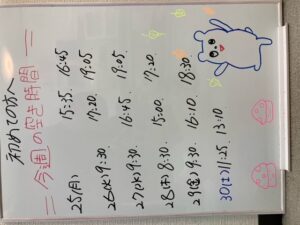 初めての方へ
＝今週の空き時間＝
25(月) 15:35. 16:45
26(火) 9:30. 17:20. 19:05
27(水) 9:30. 16:45. 19:05
28(木) 8:30. 15:00. 17:20.
29(金) 9:30. 16:10. 18:30.
30(土) 11:25. 13:10.